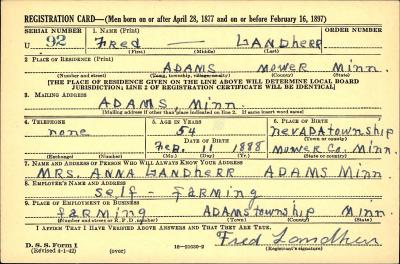 REGISTRATION CARD—(Men born on or after April 28, 1877 and on or before February 16, 1897)
SERIAL NUMBER 1. NAME (Print) ORDER NUMBER
U 92 Fred — LANDherr
(First) (Middle) (Last)
2. PLACE OF RESIDENCE (Print)
ADAMS Mower Minn.
(Number and street) (Town, township, village, or city) (County) (State)
[THE PLACE OF RESIDENCE GIVEN ON THE LINE ABOVE WILL DETERMINE LOCAL BOARD
JURISDICTION; LINE 2 OF REGISTRATION CERTIFICATE WILL BE IDENTICAL]
3. MAILING ADDRESS
ADAMS, Minn.
[Mailing address if other than place indicated on line 2. If same insert word same]
4. TELEPHONE 5. AGE IN YEARS 6. PLACE OF BIRTH
none 54 nevADAtownship
DATE OF BIRTH (Town or county)
Feb. 11 1888 Mower Co. Minn.
(Exchange) (Number) (Mo.) (Day) (Yr.) (State or country)
7. NAME AND ADDRESS OF PERSON WHO WILL ALWAYS KNOW YOUR ADDRESS
MRS. ANNA LANDherr ADAMS Minn.
8. EMPLOYER'S NAME AND ADDRESS
self - farming
9. PLACE OF EMPLOYMENT OR BUSINESS
farming ADAMS township Minn.
(Number and street or R. F. D. number) (Town) (County) (State)
I AFFIRM THAT I HAVE VERIFIED ABOVE ANSWERS AND THAT THEY ARE TRUE.
Fred Landherr
D. S. S. Form 1
(Revised 4-1-42) (over) 16—21630-2 (Registrant's signature)